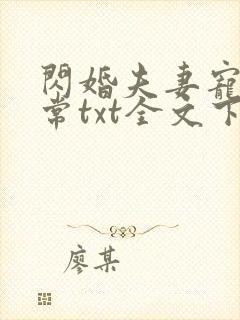 閃婚夫妻寵
常txt全文下
廖某